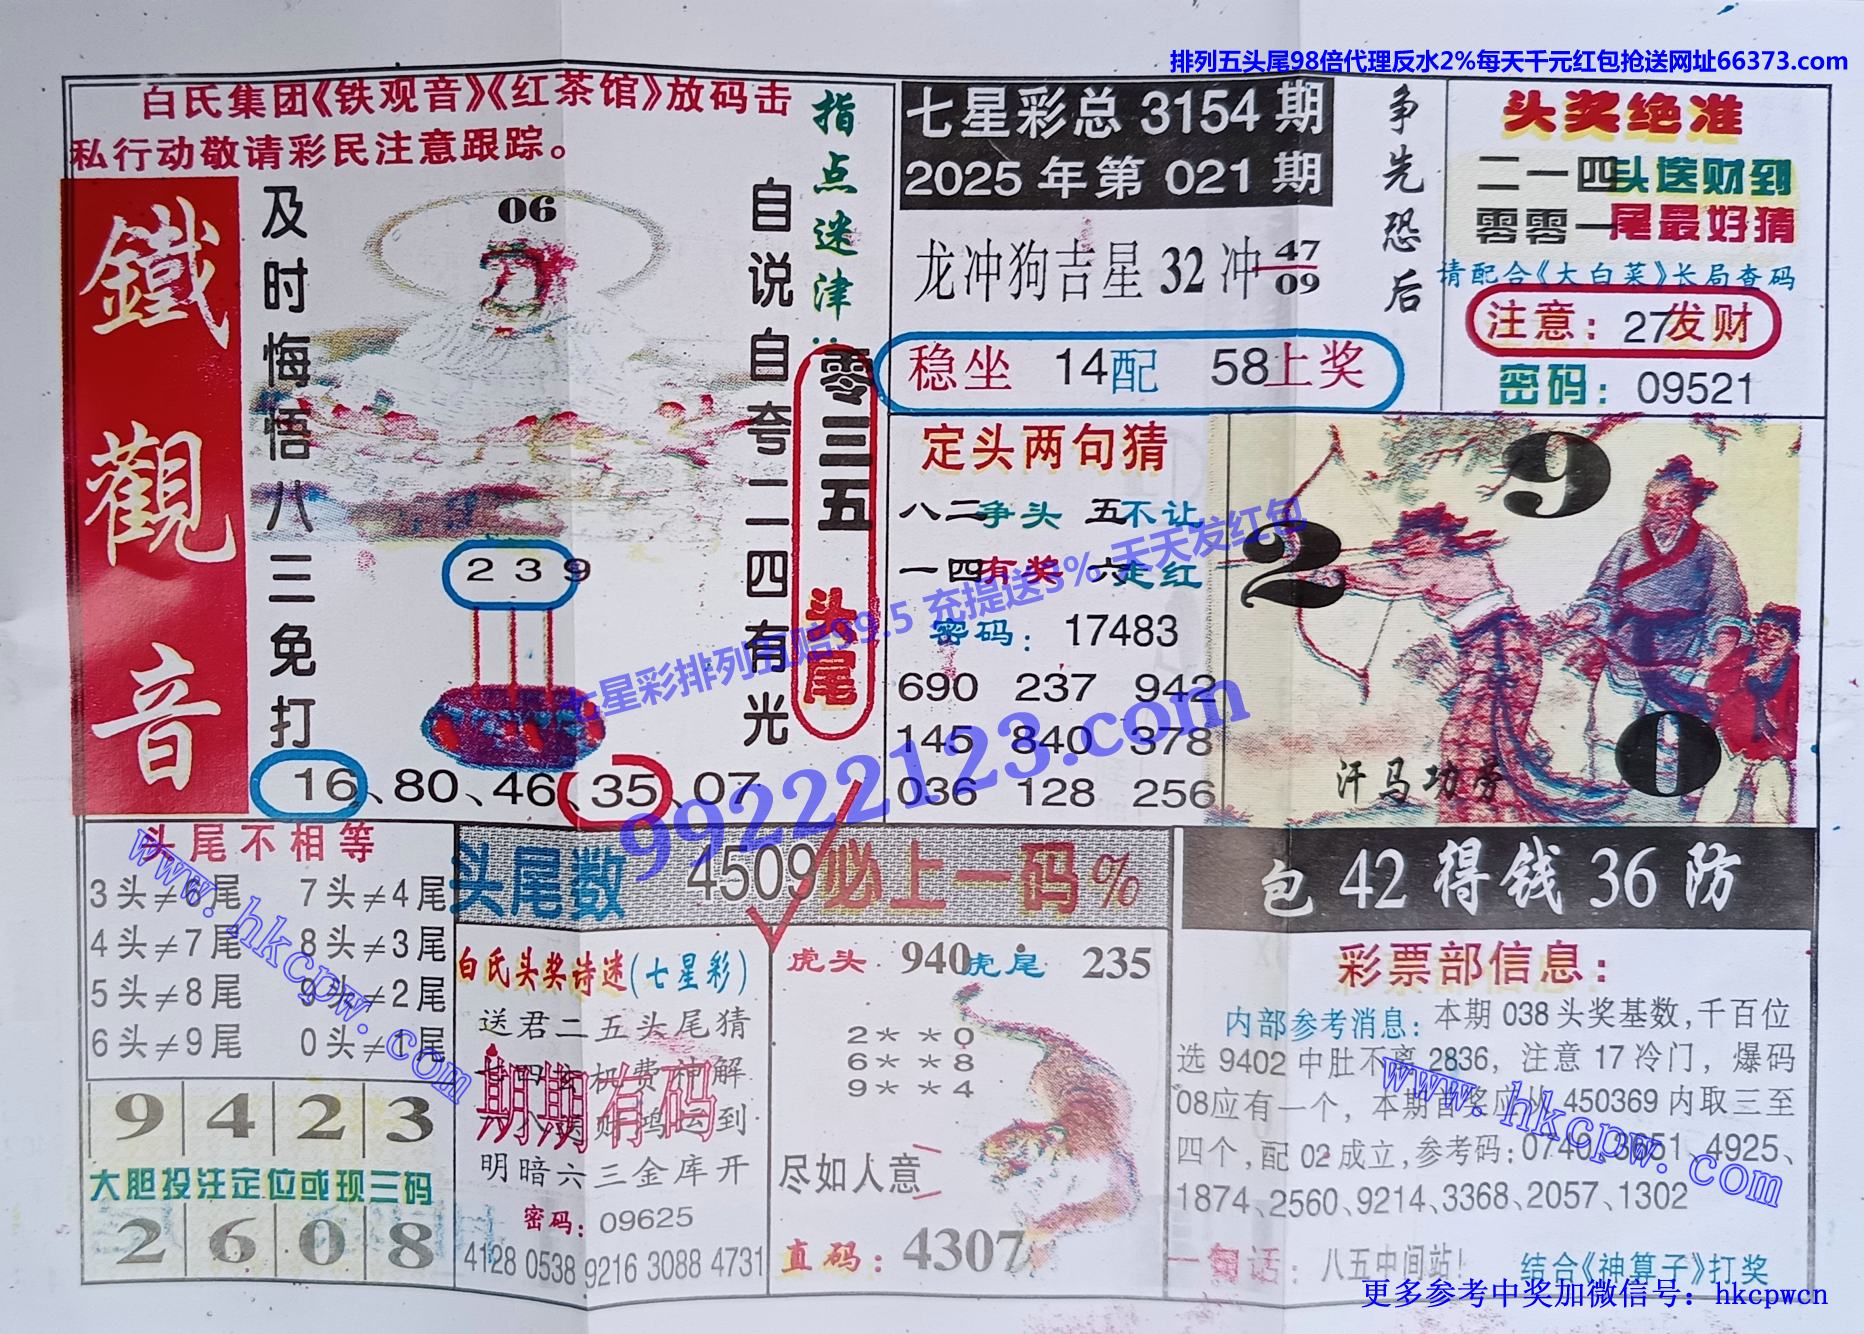 排列五头尾98倍代理反水2%每天千元红包抢送网址66373.com
白氏集团《铁观音》《红茶馆》放码击
私行动敬请彩民注意跟踪。
鐵觀音
及时悔悟八三免打
06
自说自夸二四有光
指点迷津:
零三五
头尾
2 3 9
16、80、46、35、07
七星彩总 3154 期
2025 年第 021 期
龙冲狗吉星 32 冲
47
09
争先恐后
稳坐 14配 58上奖
头奖绝准
二一四头送财到
零零一尾最好猜
请配合《大白菜》长局查码
注意:27发财
密码:09521
定头两句猜
八二争头 五不让
一四有奖 六走红
密码:17483
690 237 942
145 840 378
036 128 256
2
9
0
汗马功劳
七星彩排列五赔99.5 充提送3% 天天发红包
99222123.com
头尾不相等
3头≠6尾 7头≠4尾
4头≠7尾 8头≠3尾
5头≠8尾 9头≠2尾
6头≠9尾 0头≠1尾
www.hkcpw.com
9 4 2 3
大胆投注定位或现三码
2 6 0 8
头尾数 4509 必上一码%
白氏头奖诗迷(七星彩)
送君二五头尾猜
机费神解
到
明暗六三金库开
期期有码
密码:09625
4128 0538 9216 3088 4731
虎头 940 虎尾 235
2 * * 0
6 * * 8
9 * * 4
尽如人意
直码:4307
包 42 得钱 36 防
彩票部信息:
内部参考消息:本期 038 头奖基数,千百位
选 9402 中肚不离 2836, 注意 17 冷门, 爆码
08应有一个, 本期首奖应从 450369 内取三至
四个,配 02 成立,参考码:0740、3651、4925、
1874、2560、9214、3368、2057、1302
一句话:八五中间站! 结合《神算子》打奖
www.hkcpw.com
更多参考中奖加微信号:hkcpwcn